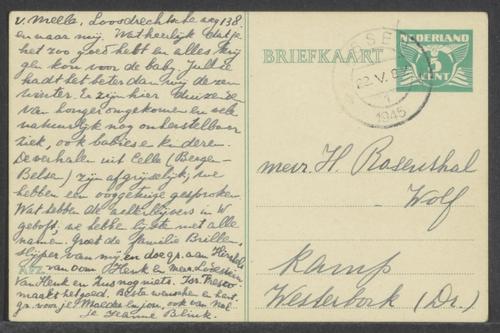 v. Melle, Loosdrechtsche weg 138.
en waar mij. Wat heerlijk dat je
het zoo goed hebt en alles krij
gen kon voor de baby. Jullie
hadt het beter dan wij deze
winter. Er zijn hier duizenden
van honger omgekomen en vele
natuurlijk nog onherstelbaar
ziek, ook babies en kinderen.
De verhalen uit Celle (Bergen-
Belsen) zijn afgrijselijk, we
hebben een ooggetuige gesproken
Wat hebben de achterblijvers in W
geboft, we hebben lijste met alle
namen. Groet de familie Brillen
slijper van mij en doe gr. aan
van oom Henk en mevr.
Van Henk en huis nog niets. Jos
maakt het goed. Beste wenschen en hart.
gr. voor je en jou, ook van
je Jeanne Blink.
Afz.
BRIEFKAART
NEDERLAND
5
CENT
22.V.
1
1945
mevr. H. Rosenthal
Wolf
Kamp
Westerbork (Dr.)